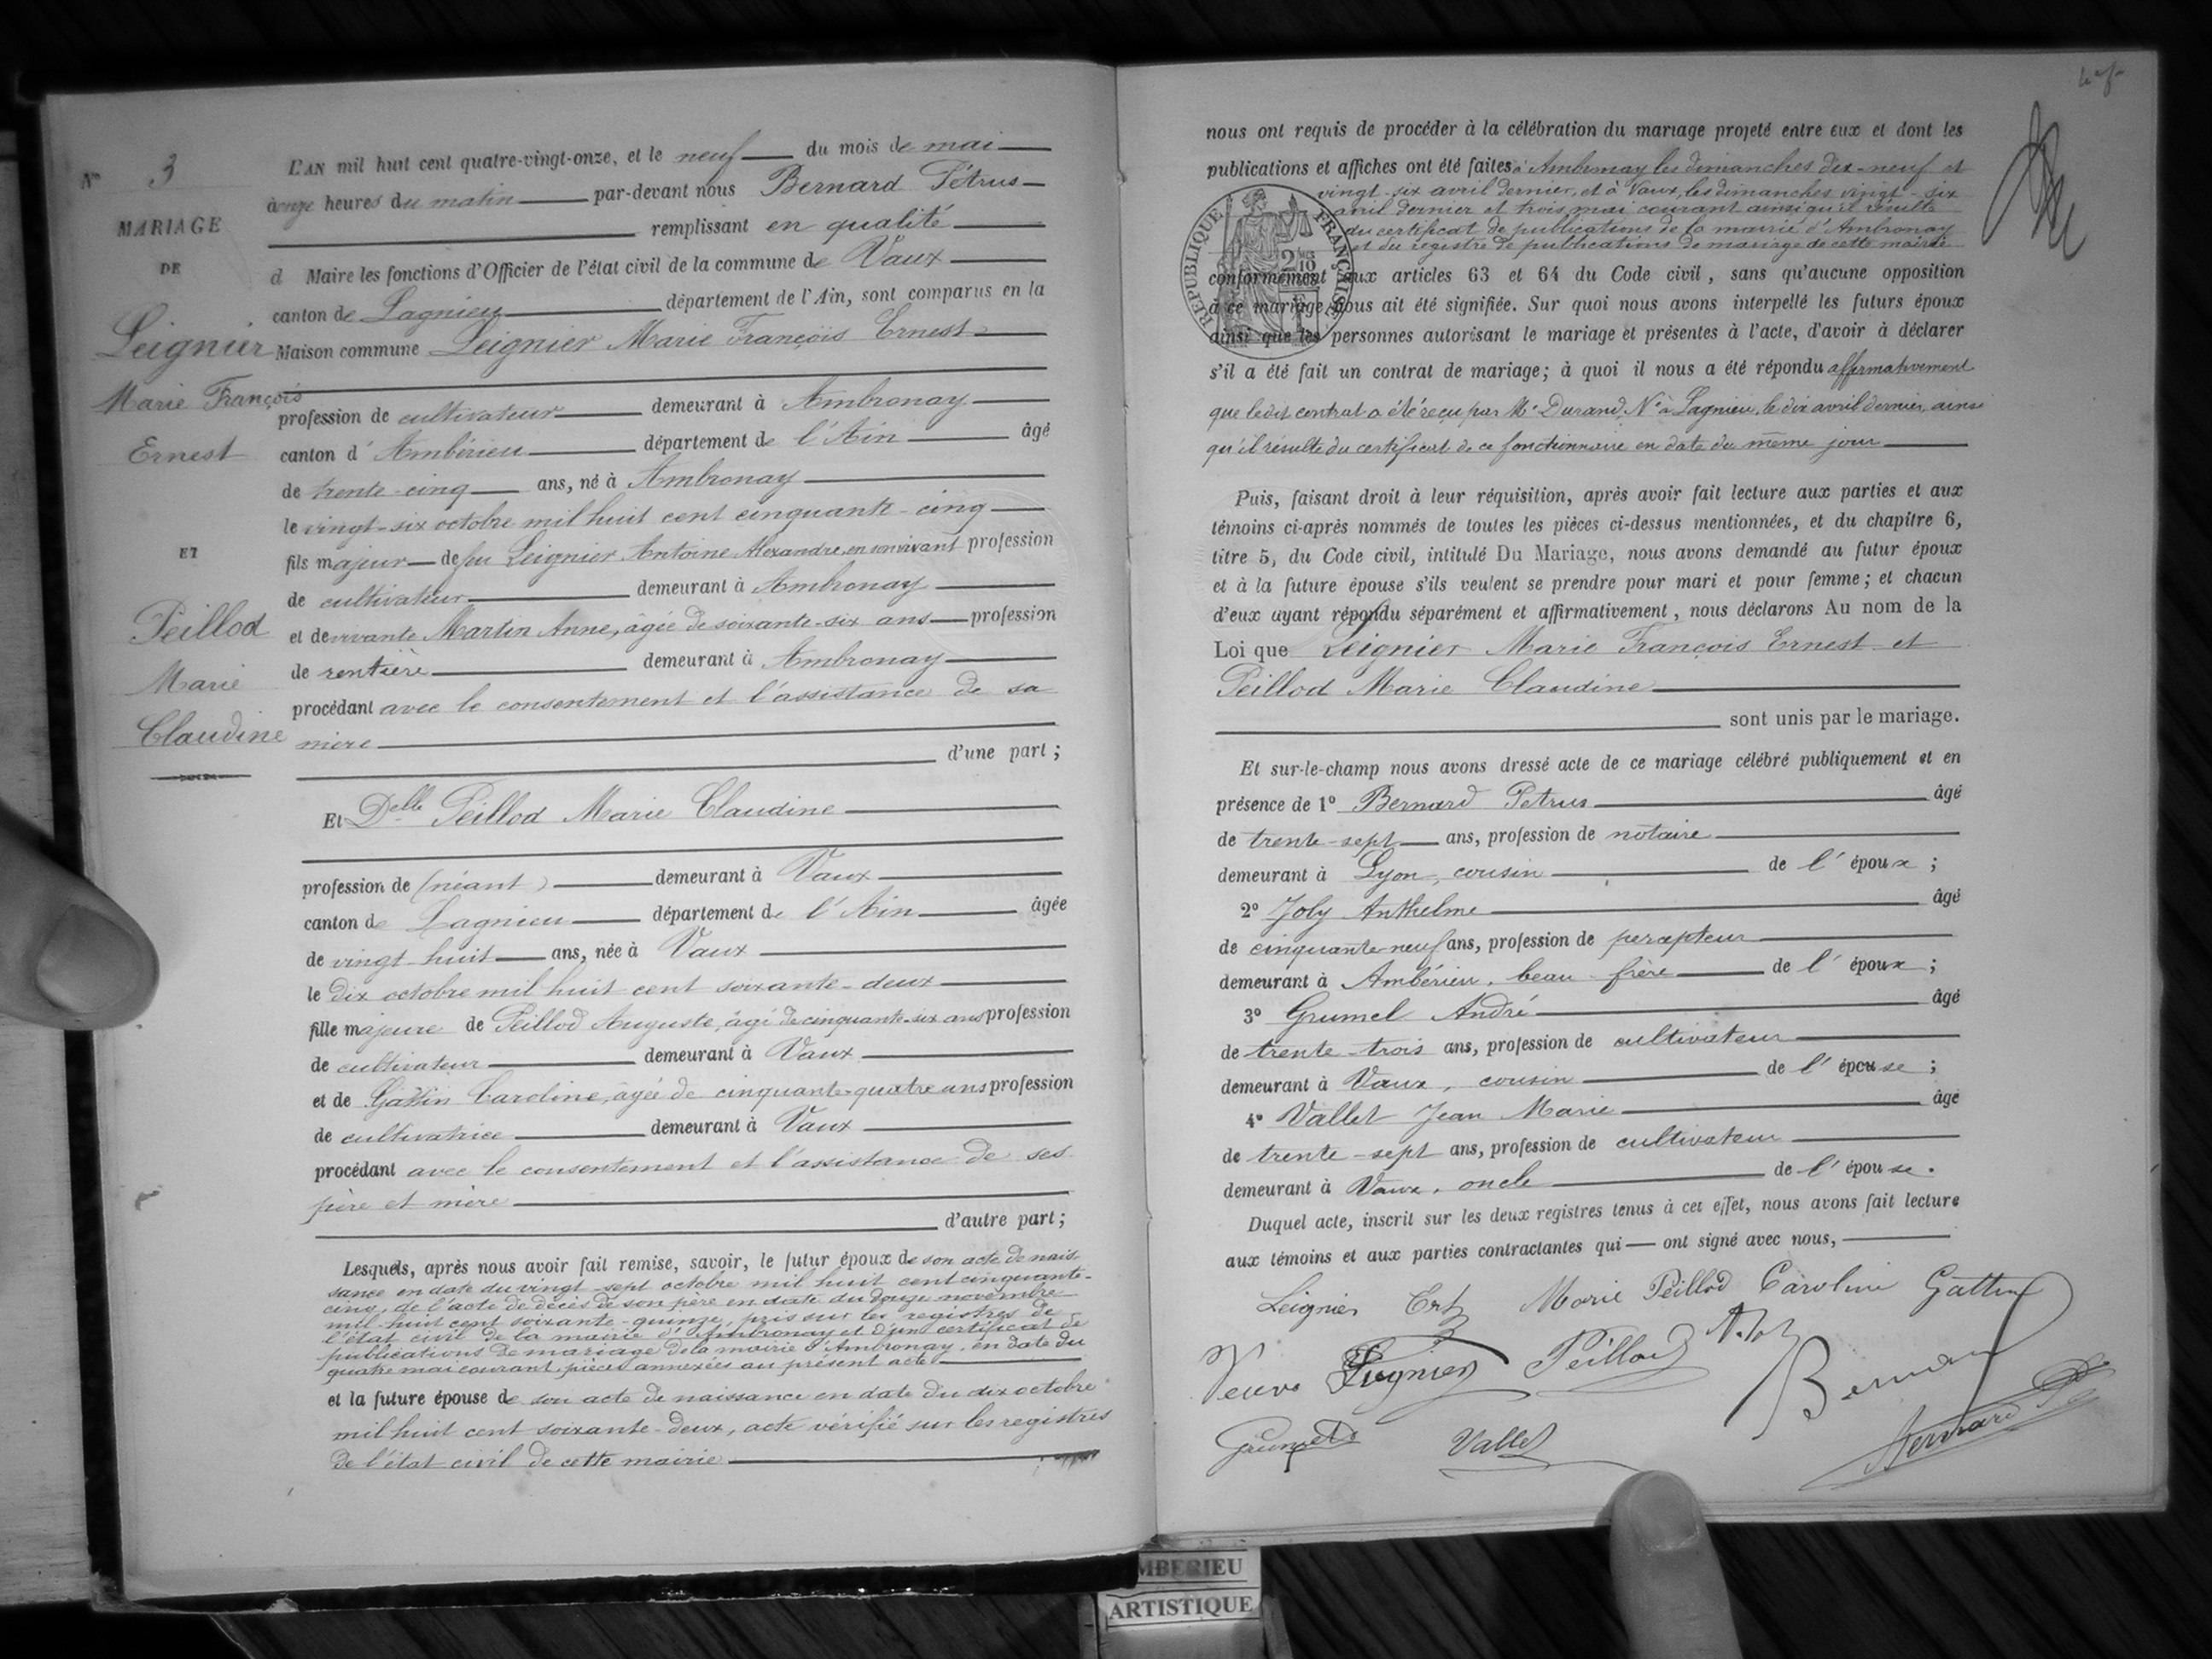 N° 3
MARIAGE
DE
Leignier
Marie François
Ernest
ET
Peillod
Marie
Claudine
L'AN mil huit cent quatre-vingt-onze, et le neuf du mois de mai
à onze heures du matin par-devant nous Bernard Pétrus
remplissant en qualité
d Maire les fonctions d'Officier de l'état civil de la commune de Vaux
canton de Lagnieu département de l'Ain, sont comparus en la
Maison commune Leignier Marie François Ernest
profession de cultivateur demeurant à Ambronay
canton d'Ambérieu département de l'Ain âgé
de trente-cinq ans, né à Ambronay
le vingt-six octobre mil huit cent cinquante-cinq
fils majeur de feu Leignier Antoine Alexandre, en son vivant profession
de cultivateur demeurant à Ambronay
et de vivante Martin Anne, âgée de soixante-six ans profession
de rentière demeurant à Ambronay
procédant avec le consentement et l'assistance de sa
mère
d'une part ;
Et Delle Peillod Marie Claudine
profession de (néant) demeurant à Vaux
canton de Lagnieu département de l'Ain âgée
de vingt huit ans, née à Vaux
le dix octobre mil huit cent soixante-deux
fille majeure de Peillod Auguste, âgé de cinquante-six ans profession
de cultivateur demeurant à Vaux
et de Gattin Caroline, âgée de cinquante-quatre ans profession
de cultivatrice demeurant à Vaux
procédant avec le consentement et l'assistance de ses
père et mère
d'autre part ;
Lesquels, après nous avoir fait remise, savoir, le futur époux de son acte de nais-
sance en date du vingt-sept octobre mil huit cent cinquante-
cinq, de l'acte de décès de son père en date du douze novembre
mil-huit cent soixante-quinze, pris sur les registres de
l'état civil de la mairie d'Ambronay et d'un certificat de
publications de mariage de la mairie d'Ambronay, en date du
quatre mai courant, pièces annexées au présent acte
et la future épouse de son acte de naissance en date du dix octobre
mil huit cent soixante-deux, acte vérifié sur les registres
de l'état civil de cette mairie
nous ont requis de procéder à la célébration du mariage projeté entre eux et dont les
publications et affiches ont été faites à Ambronay les dimanches dix-neuf et
vingt-six avril dernier, et à Vaux, les dimanches vingt-six
avril dernier et trois mai courant ainsi qu'il résulte
du certificat de publications de la mairie d'Ambronay
et du registre de publications de mariage de cette mairie
RÉPUBLIQUE FRANÇAISE
conformément aux articles 63 et 64 du Code civil, sans qu'aucune opposition
à ce mariage nous ait été signifiée. Sur quoi nous avons interpellé les futurs époux
ainsi que les personnes autorisant le mariage et présentes à l'acte, d'avoir à déclarer
s'il a été fait un contrat de mariage ; à quoi il nous a été répondu affirmativement
que ledit contrat a été reçu par Me Durand, Nre à Lagnieu, le dix avril dernier, ainsi
qu'il résulte du certificat de ce fonctionnaire en date du même jour
Puis, faisant droit à leur réquisition, après avoir fait lecture aux parties et aux
témoins ci-après nommés de toutes les pièces ci-dessus mentionnées, et du chapitre 6,
titre 5, du Code civil, intitulé Du Mariage, nous avons demandé au futur époux
et à la future épouse s'ils veulent se prendre pour mari et pour femme ; et chacun
d'eux ayant répondu séparément et affirmativement, nous déclarons Au nom de la
Loi que Leignier Marie François Ernest et
Peillod Marie Claudine
sont unis par le mariage.
Et sur-le-champ nous avons dressé acte de ce mariage célébré publiquement et en
présence de 1° Bernard Petrus âgé
de trente-sept ans, profession de notaire
demeurant à Lyon, cousin de l'époux ;
2° Joly Anthelme âgé
de cinquante-neuf ans, profession de percepteur
demeurant à Ambérieu, beau-frère de l'époux ;
3° Grumel André âgé
de trente-trois ans, profession de cultivateur
demeurant à Vaux, cousin de l'épouse ;
4° Vallet Jean Marie âgé
de trente-sept ans, profession de cultivateur
demeurant à Vaux, oncle de l'épouse.
Duquel acte, inscrit sur les deux registres tenus à cet effet, nous avons fait lecture
aux témoins et aux parties contractantes qui ont signé avec nous,
Leignier Marie Peillod Caroline Gattin
Veuve Leignier Peillod
Bernard
Grumel Vallet Bernard
MBERIEU
ARTISTIQUE